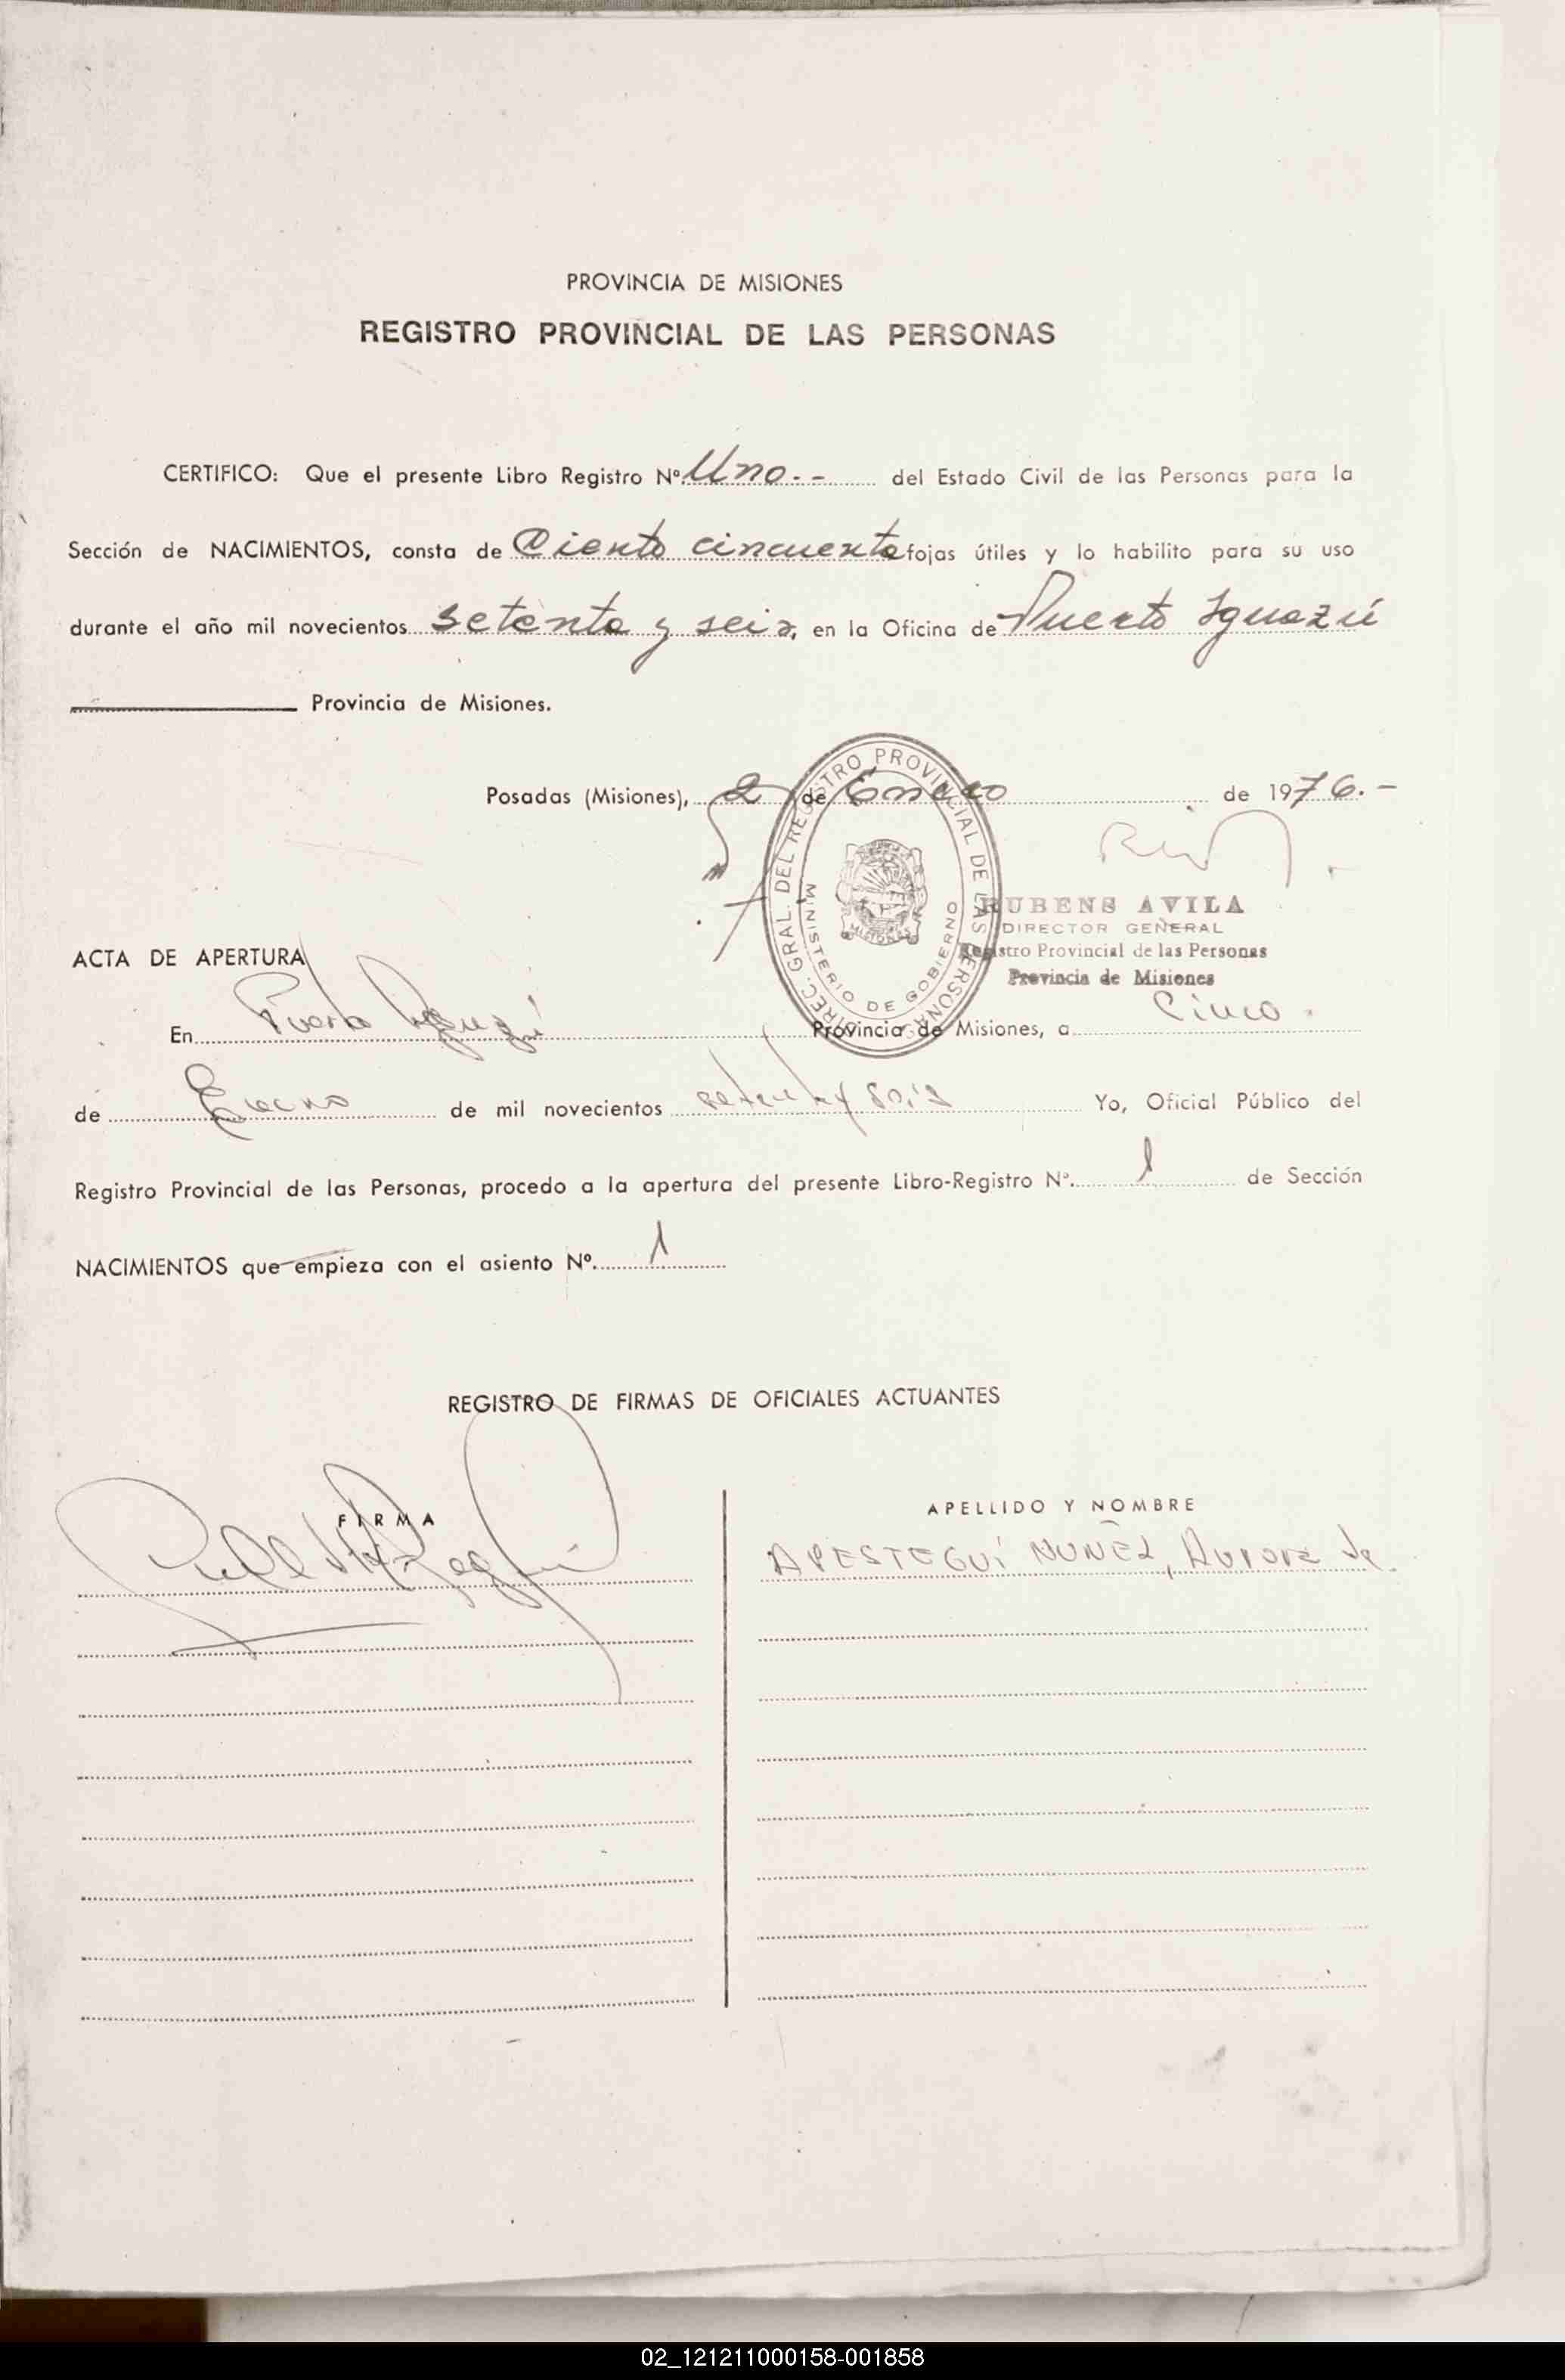 PROVINCIA DE MISIONES
REGISTRO PROVINCIAL DE LAS PERSONAS
CERTIFICO: Que el presente Libro Registro Nº Uno.- del Estado Civil de las Personas para la
Sección de NACIMIENTOS, consta de Ciento cincuenta fojas útiles y lo habilito para su uso
durante el año mil novecientos setenta y seis, en la Oficina de Puerto Iguazú
Provincia de Misiones.
Posadas (Misiones), 2 de Enero de 1976.-
DIREC. GRAL. DEL REGISTRO PROVINCIAL DE LAS PERSONAS
MINISTERIO DE GOBIERNO
MISIONES
RUBENS AVILA
DIRECTOR GENERAL
Registro Provincial de las Personas
Provincia de Misiones
ACTA DE APERTURA
En Puerto Iguazú Provincia de Misiones, a Cinco
de Enero de mil novecientos setenta y seis Yo, Oficial Público del
Registro Provincial de las Personas, procedo a la apertura del presente Libro-Registro Nº. 1 de Sección
NACIMIENTOS que empieza con el asiento Nº. 1
REGISTRO DE FIRMAS DE OFICIALES ACTUANTES
FIRMA
APELLIDO Y NOMBRE
APESTEGUÍ NUÑEZ, Aurora de
02_121211000158-001858